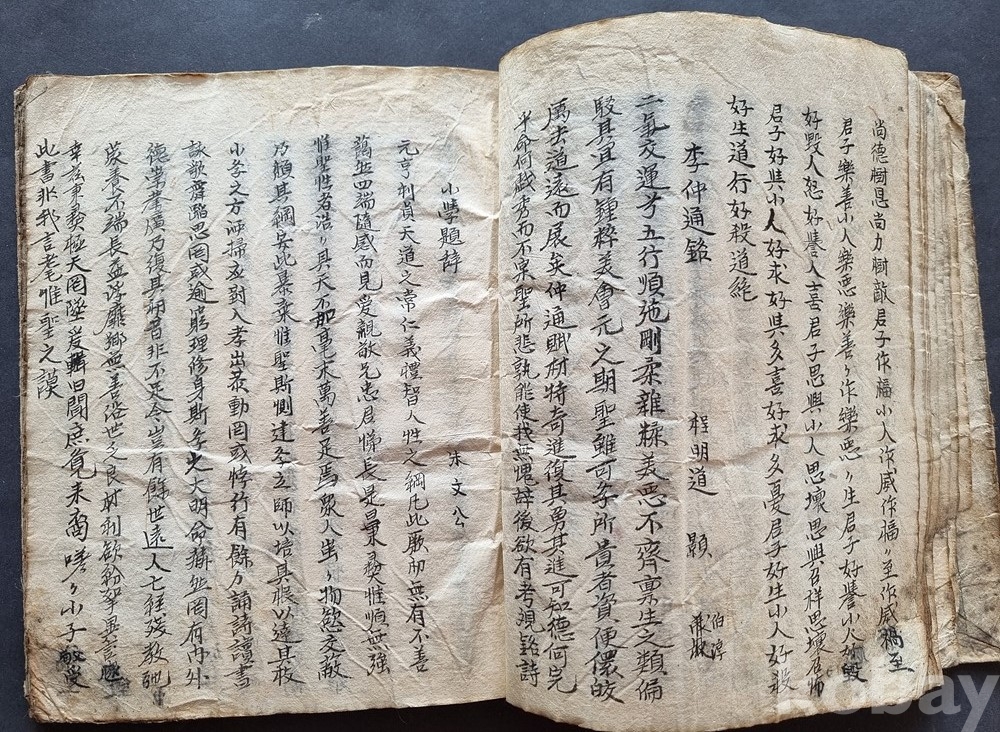 尚德樹恩尚力樹敵君子作福小人作威作福〃至作威禍至
君子樂善小人樂惡樂善〃作樂惡〃生君子好譽小人好毀
好毀人怒好譽人喜君子思興小人思壞思興召祥思壞召
君子好與小人好求好與多喜好求多憂君子好生小人好殺
好生道行好殺道絶
李仲通銘 程明道 顥 伯淳
二氣交運兮五行順施剛柔雜糅美惡不齊禀生之類偏
駁其宜有鍾粹美會元之期聖雖可學所貴者資便儇皎
厲去道遠而展矣仲通賦材特奇進復其勇其進可知德何完
半命何戲秀而不實聖所悲孰能使我無愧辞後欲有考觀銘詩
小學題辞 朱文公
元亨利貞天道之常仁義禮智人性之綱凡此厥初無有不善
藹然四端隨感而見爱親敬兄忠君悌長是曰秉彛惟順無强
惟聖性者浩〃其天不加毫末萬善足焉衆人蚩〃物慾交蔽
乃頺其綱安此暴棄惟聖斯惻建學立師以培其根以達其枝
小學之方洒掃應對入孝出恭動罔或悖行有餘力誦詩讀書
詠歌舞蹈思罔或逾窮理修身斯學大大明命赫然罔有內外
德崇業廣乃復其初昔非不足今豈有餘世遠人亡經殘教弛
蒙養不端長益浮靡鄉無善俗世乏良材利欲紛挐異言
幸玆秉彛極天罔墜爰輯旧聞庶覺来裔嗟〃小子敬受
此書非我言耄惟聖之謨
kobay